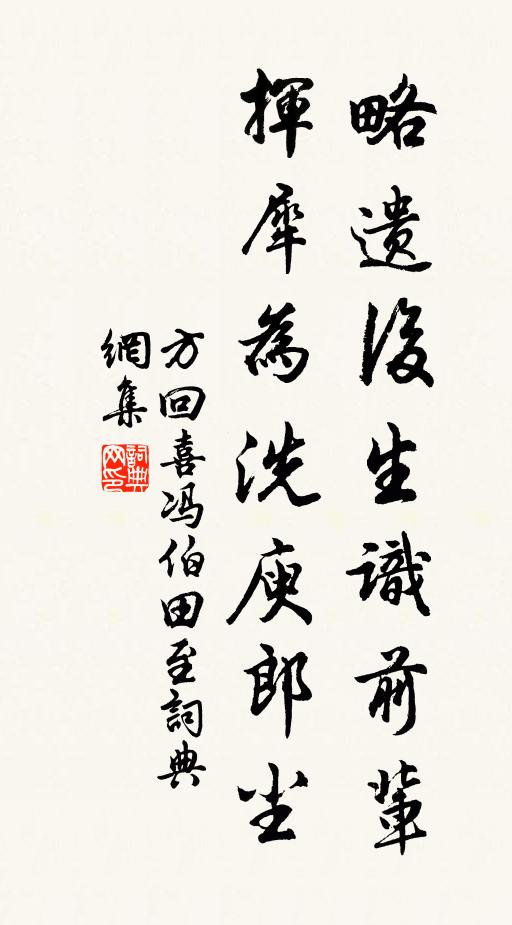 略遺後生識前輩
揮犀為洗庾郎尘
方回喜冯伯田至詞典
網集
詞典
网印